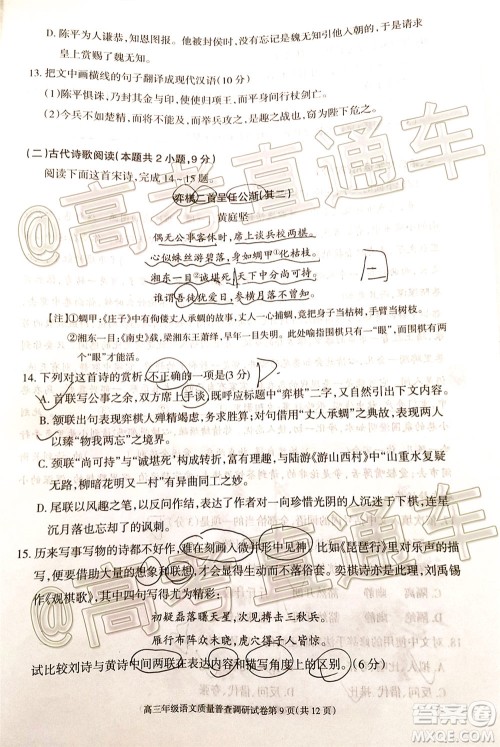 D. 陈平为人谦恭，知恩图报。他被封侯时，没有忘记是魏无知引荐了他，于是请求
皇上赏赐了魏无知。
13. 把文中画横线的句子翻译成现代汉语(10分)
(1)陈平惧诛，乃封其金与印，使使归项王，而平身间行杖剑亡。
(2)今兵不如楚精，而将不能及，而举兵攻之，是趣之战也，窃为陛下危之。
(二)古代诗歌阅读(本题共2小题,9分)
阅读下面这首宋诗，完成14～15题。
弈棋二首呈任公渐(其二)
黄庭坚
偶无公事客休时，席上谈兵校两棋。
心似蛛丝游碧落，身如蜩甲①化枯枝。
湘东一目②诚堪死，天下中分尚可持。
谁谓吾徒犹爱日，参横月落不曾知。
【注】①蜩甲：《庄子》中有佝偻丈人蜩甲的故事，丈人一心捕蜩，身子当枯树，手臂当树枝。
②湘东一目：《南史》载，梁湘东王萧绎，早年一目失明。此处喻指围棋一只有“一眼”，而围棋有两
个“眼”才能活。
14. 下列对这首诗的赏析，不正确的一项是(3分)
A. 首联写公事之余，双方席上手谈，既呼应标题中“弈棋”二字，又自然引出后文内容。
B. 颔联出句表现弈棋人殚精竭虑，务求胜算；对句借用“丈人承蜩”之典故，表现两人
以臻“物我两忘”之境界。
C. 颈联“尚可持”与“诚堪死”构成转折，富有理趣，与陆游《游山西村》中“山重水复疑
无路，柳暗花明又一村”有异曲同工之妙。
D. 尾联以风趣之笔，以反问作结，表现了一向珍惜光阴的人沉迷于下棋，以至连星
沉月落也不曾知的讽刺。
15. 历来写事写物的诗都不好作，难在刻画入微中形中见神，比如《琵琶行》对乐声的描
写，便要借助大量的想象和联想，才能将其化无形为有形。弈棋诗尤难，刘禹锡
作《观棋歌》，其中四句写得尤为精彩：
初疑磊落曙天星，次见搏击三秋兵。
雁行布阵众未晓，虎穴得子人皆惊。
试比较刘诗与黄诗中间两联在表达内容和描写角度上的区别。(6分)
高三年级语文质量普查调研试卷第9页(共12页)
@高考直通车